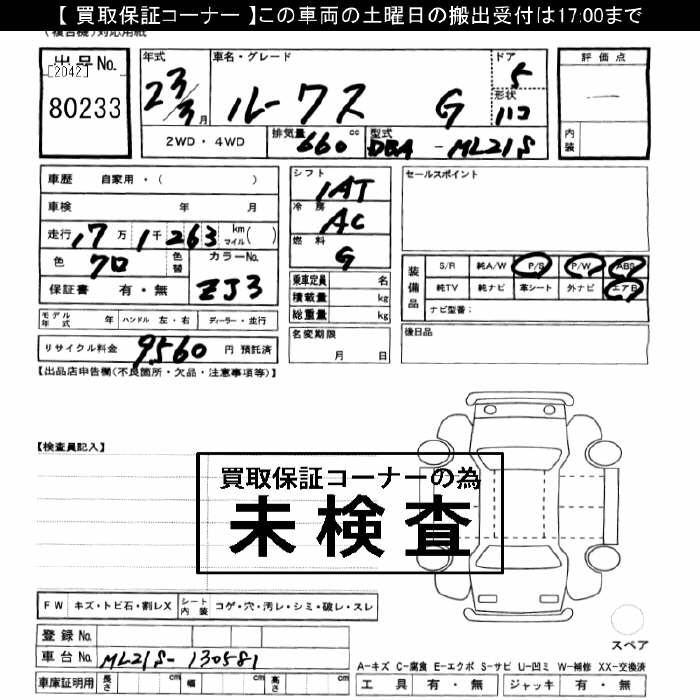 【 買取保証コーナー 】この車両の土曜日の搬出受付は17:00まで
(複合機)対応用紙
出品No.
[2042]
80233
年式
23/3月
車名・グレード
ルークス G
ドア
5
形状
ハコ
評価点
—
内装
2WD・4WD
排気量 660 cc
型式 DBA - ML21S
車歴 自家用・( )
車検 年 月
走行 17万1千263 km マイル( )
色 クロ 色替
カラーNo.
ZJ3
保証書 有・無
モデル年式 年 ハンドル 左・右 ディーラー・並行
リサイクル料金 9560 円 預託済
シフト
IAT
冷房
AC
燃料
G
乗車定員 名
積載量 kg
総重量 kg
名変期限
月 日
セールスポイント
装備品
S/R 純A/W P/S P/W ABS
純TV 純ナビ 革シート 外ナビ エアB
ナビ型番:
後日品
【出品店申告欄(不良箇所・欠品・注意事項等)】
【検査員記入】
買取保証コーナーの為
未検査
FW キズ・トビ石・割レX シート内装 コゲ・穴・汚レ・シミ・破レ・スレ
登録No.
車台No. ML21S-130581
車庫証明用 長さ cm 幅 cm 高さ cm
スペア
A-キズ C-腐食 E-エクボ S-サビ U-凹ミ W-補修 XX-交換済
工具 有・無 ジャッキ 有・無